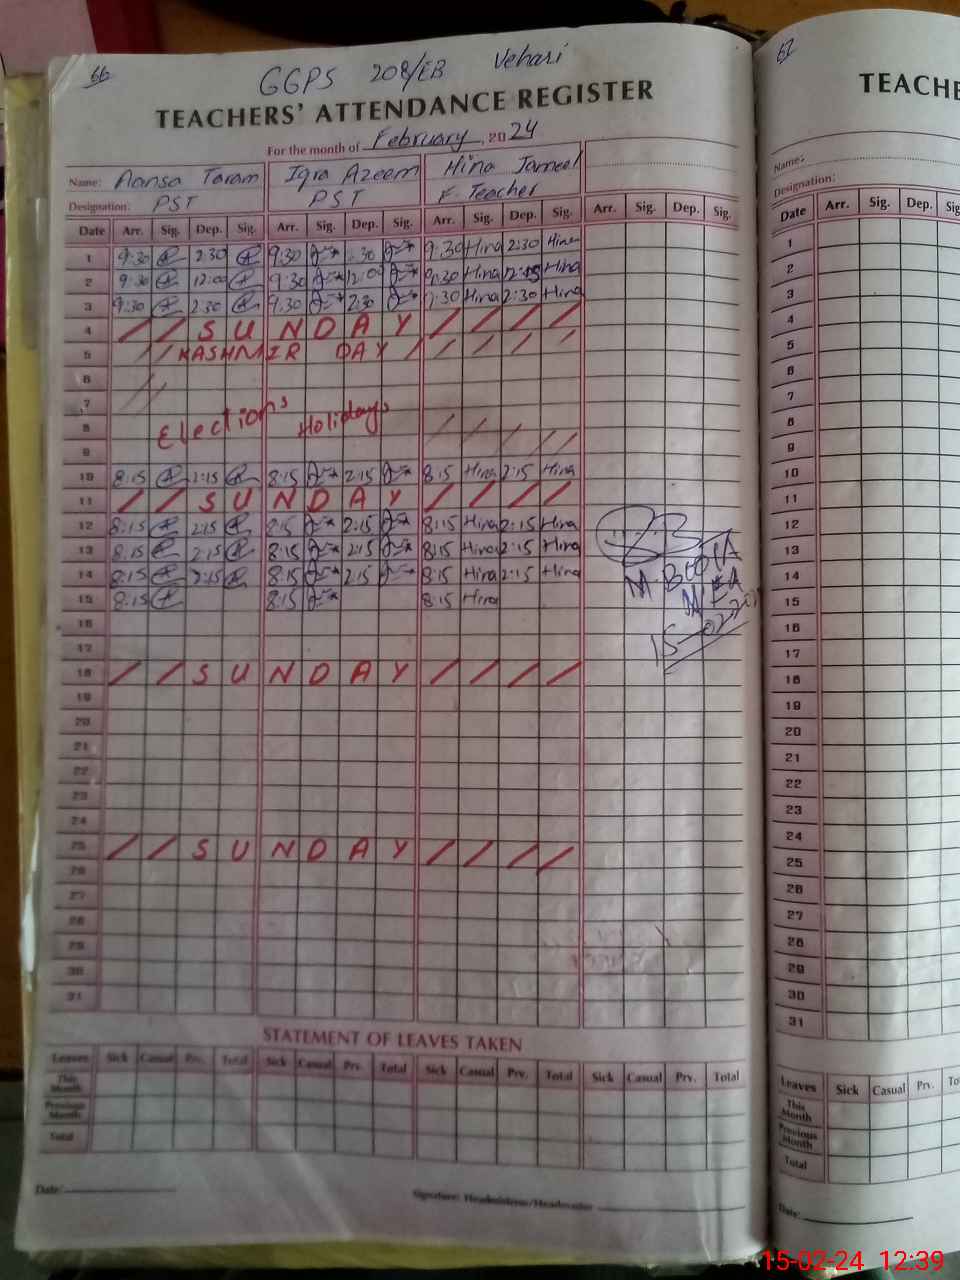 66
GGPS 208/EB Vehari
TEACHERS' ATTENDANCE REGISTER
For the month of February, 2024
Name: Iqra Azeem Hina Jameel
Designation: PST PST F. Teacher
Date Arr. Sig. Dep. Sig. Arr. Sig. Dep. Sig. Arr. Sig. Dep. Sig. Arr. Sig. Dep. Sig.
1 9:30 2:30 9:30 :30 9:30 Hina 2:30 Hina
2 9:30 12:00 9:30 12:00 9:30 Hina Hina
3 9:30 2:30 9:30 2:30 9:30 Hina 2:30 Hina
4 / / S U N D A Y / / / /
5 / / KASHMIR DAY / / / / /
6
7
8 Elections Holidays
9
10 8:15 2:15 8:15 2:15 8:15 Hina 2:15 Hina
11 / / S U N D A Y / / / /
12 8:15 2:15 8:15 2:15 8:15 Hina 2:15 Hina
13 8:15 2:15 8:15 2:15 8:15 Hina 2:15 Hina
14 8:15 2:15 8:15 2:15 8:15 Hina 2:15 Hina
15 8:15 8:15 8:15 Hina
M. BOOTA
MEA
16
17
18 / / S U N D A Y / / / /
19
20
21
22
23
24
25 / / S U N D A Y / / / /
26
27
28
29
30
31
STATEMENT OF LEAVES TAKEN
Leaves Sick Casual Prv. Total Sick Casual Prv. Total Sick Casual Prv. Total Sick Casual Prv. Total
This Month
Previous Month
Total
Date:
Signature: Headmistress/Headmaster
67
TEACHE
Name:
Designation:
Date Arr. Sig. Dep. Sig
1
2
3
4
5
6
7
8
9
10
11
12
13
14
15
16
17
18
19
20
21
22
23
24
25
26
27
28
29
30
31
Leaves Sick Casual Prv. To
This Month
Previous Month
Total
Date:
15-02-24 12:39